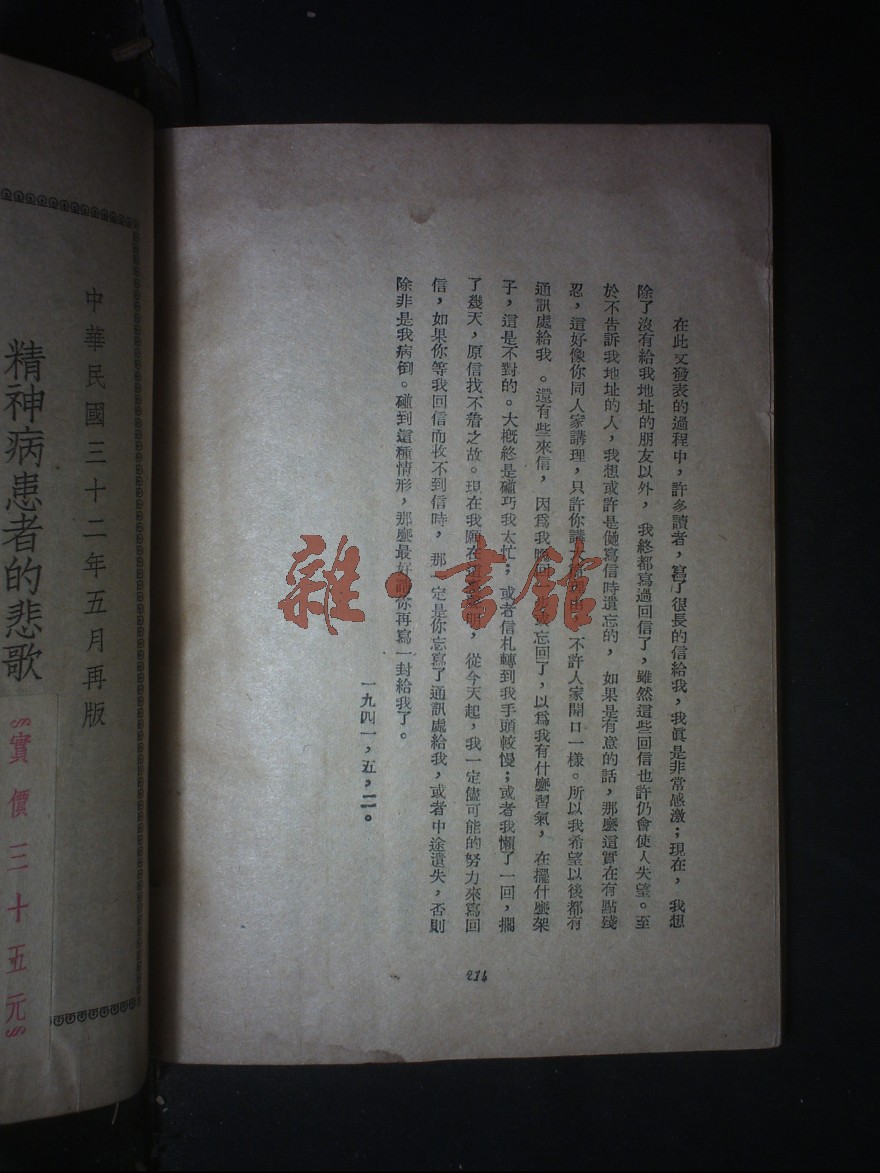 在此文發表的過程中，許多讀者，寫了很長的信給我，我眞是非常感激；現在，我想
除了沒有給我地址的朋友以外，我終都寫過回信了，雖然這些回信也許仍會使人失望。至
於不告訴我地址的人，我想或許是他寫信時遺忘的，如果是有意的話，那麼這實在有點殘
忍，這好像你同人家講理，只許你講，不許人家開口一樣。所以我希望以後都有
通訊處給我。還有些來信，因爲我晚回忘回了，以爲我有什麼習氣，在擺什麼架
子，這是不對的。大槪終是碰巧我太忙；或者信札轉到我手頭較慢；或者我懶了一回，擱
了幾天，原信找不着之故。現在我願在明，從今天起，我一定儘可能的努力來寫回
信，如果你等我回信而收不到信時，那一定是你忘寫了通訊處給我，或者中途遺失，否則
除非是我病倒。碰到這種情形，那麼最好請你再寫一封給我了。
一九四一，五，二。
214
中華民國三十二年五月再版
精神病患者的悲歌
實價三十五元
雜·書館